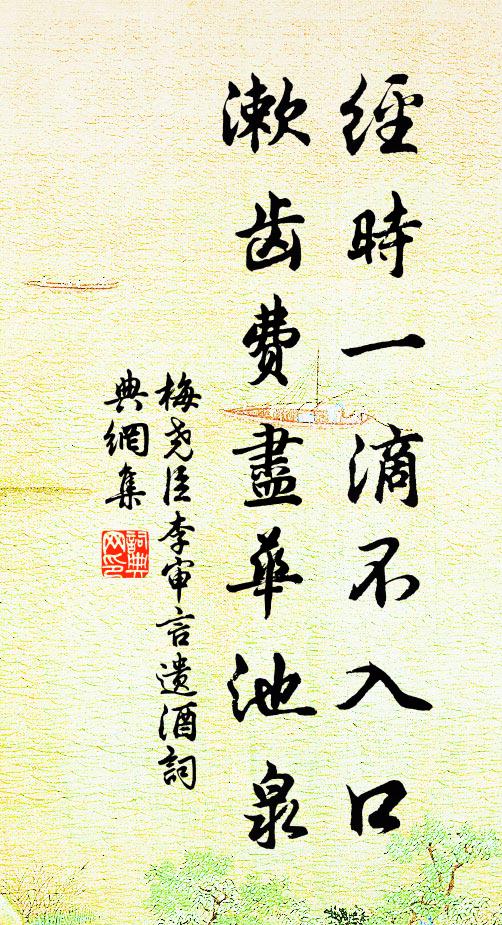 經時一滴不入口
漱齿費盡華池泉
梅尧臣李审言遗酒詞
典網集
詞典
网印